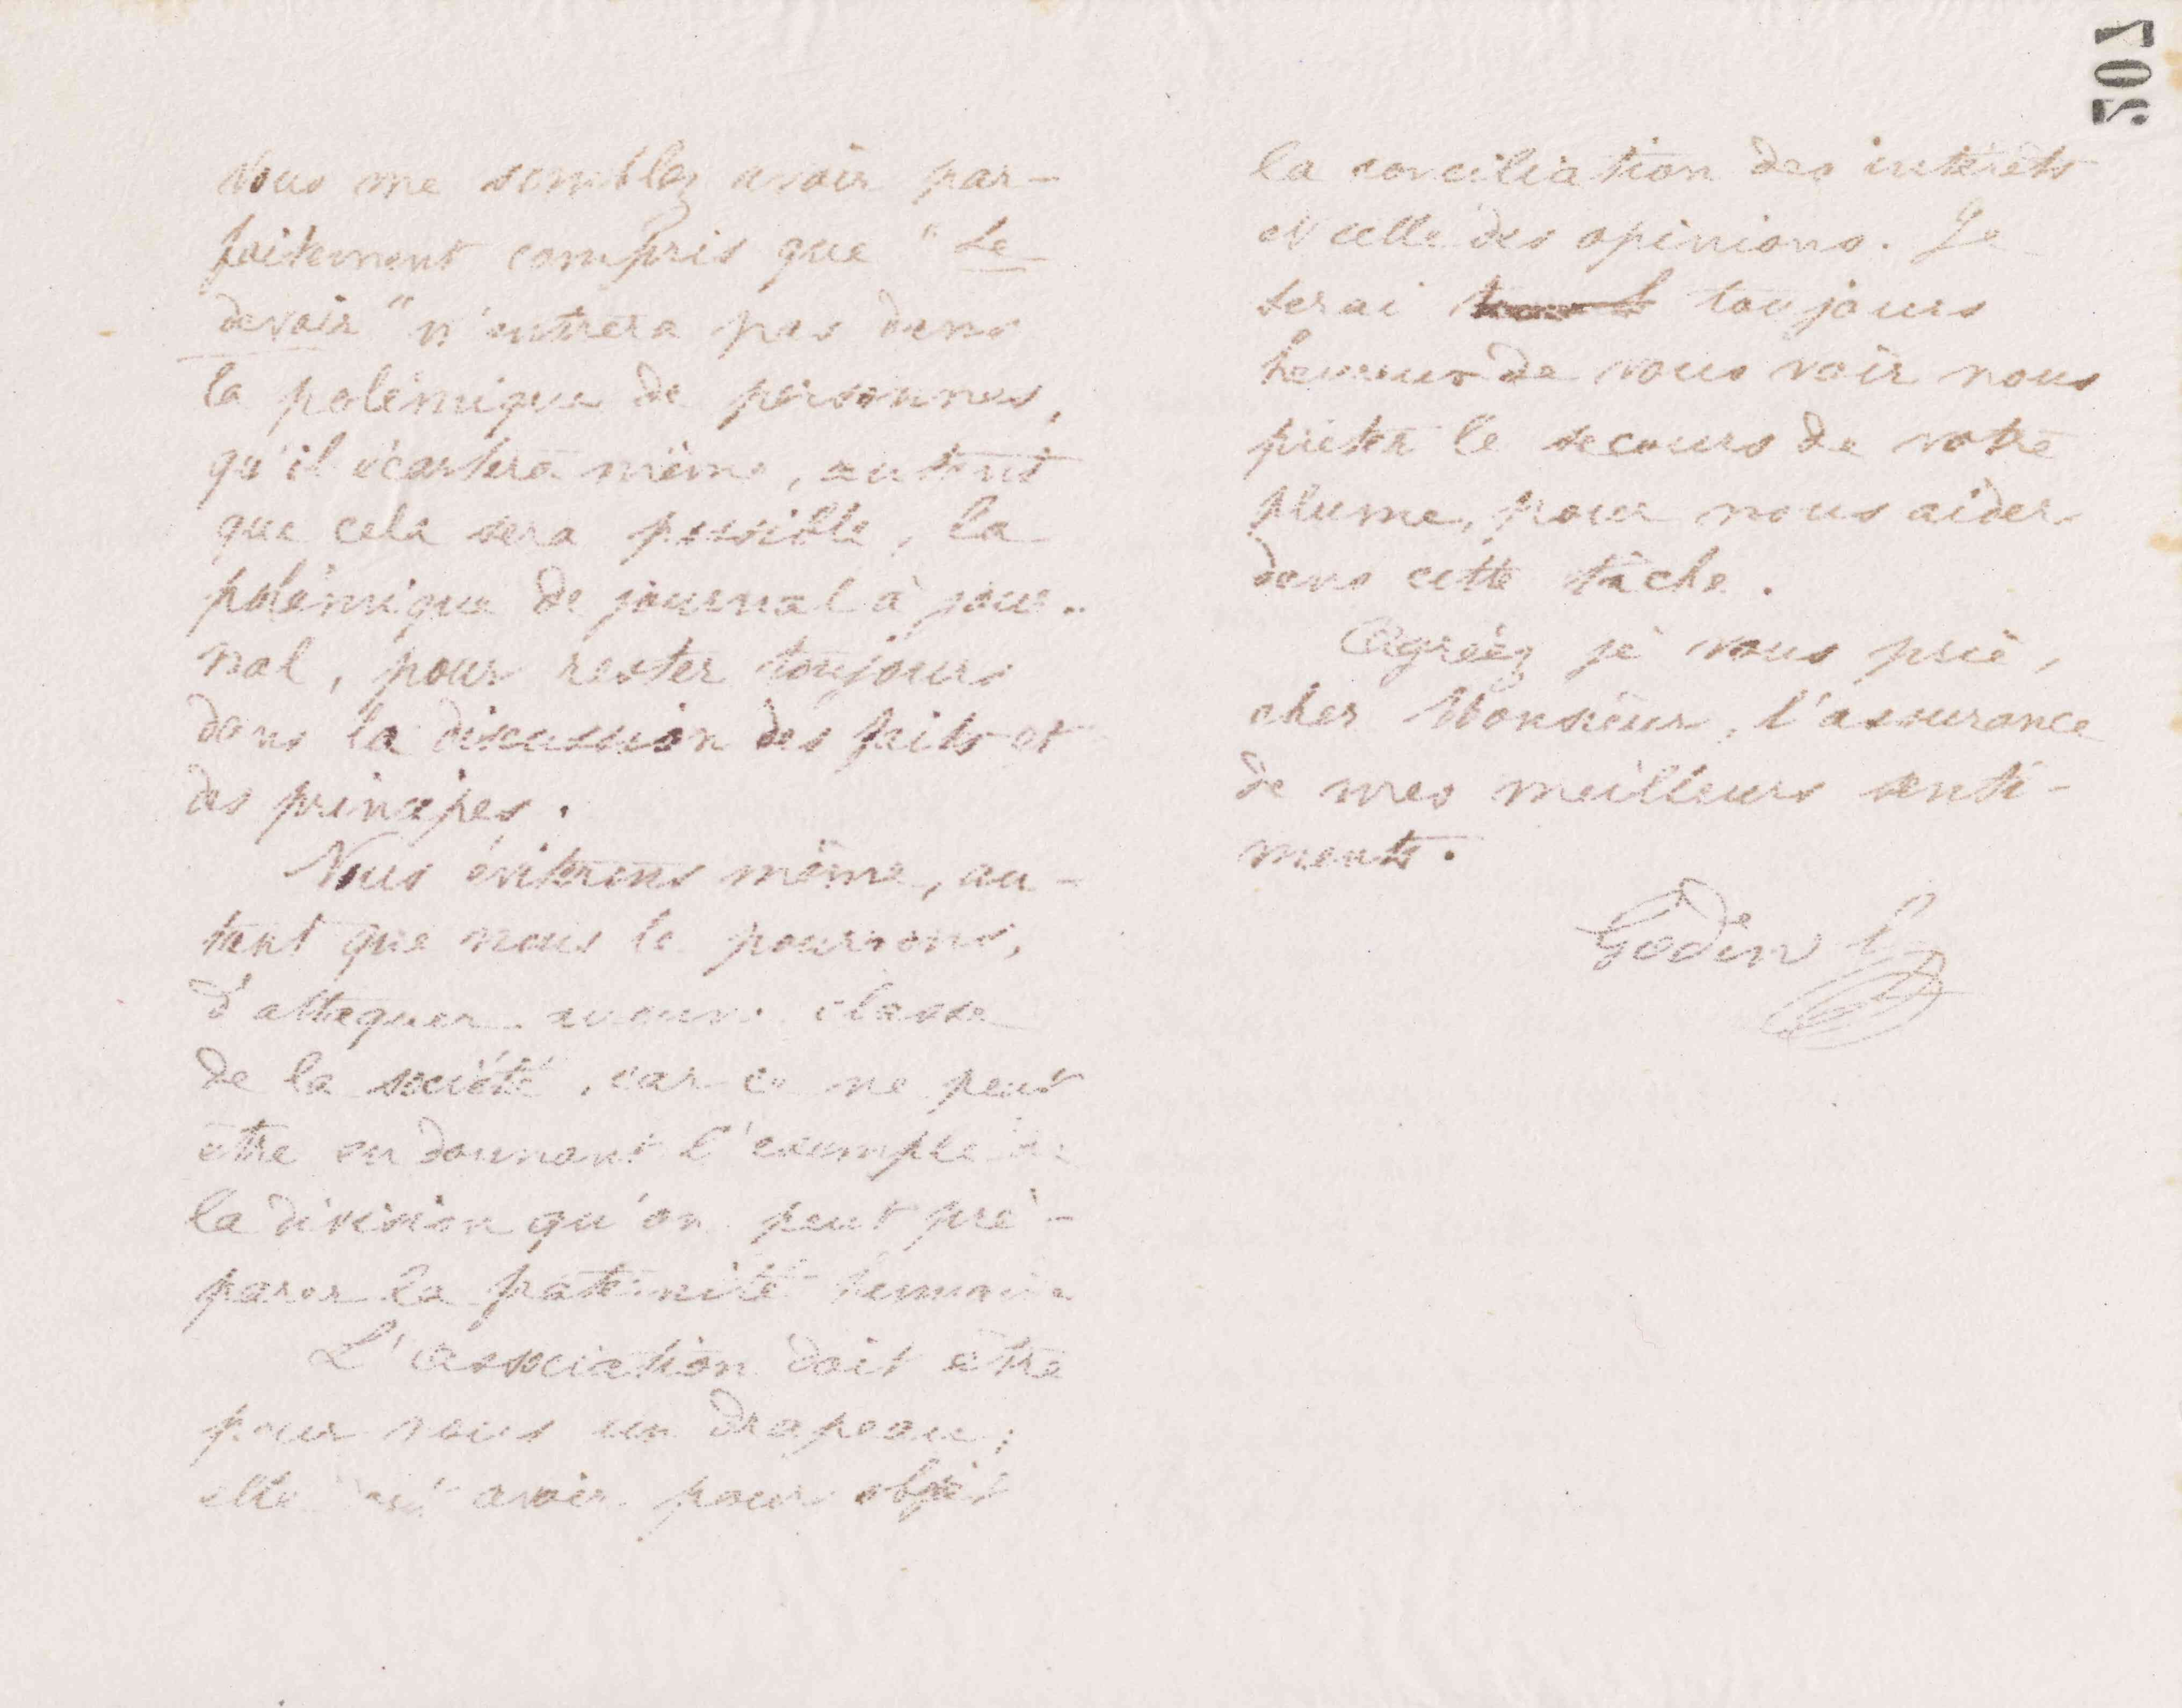 Vous me semblez avoir par-
faitement compris que "Le
devoir" n'entrera pas dans
la polémique de personnes,
qu'il écartera même, autant
que cela sera possible, la
polémique de journal à jour-
nal, pour rester toujours
dans la discussion des faits et
des principes.
Nous éviterons même, au-
tant que nous le pourrons,
d'attaquer aucune classe
de la société, car ce ne peut
être en donnant l'exemple de
la division qu'on peut pré-
parer la fraternité humaine
L'association doit être
pour nous un drapeau;
elle doit avoir pour objet
la conciliation des intérêts
et celle des opinions. Je
serai toujours
heureux de vous voir nous
prêter le secours de votre
plume, pour nous aider
dans cette tâche.
Agréez je vous prie,
cher Monsieur, l'assurance
de mes meilleurs senti-
ments.
Godin
502